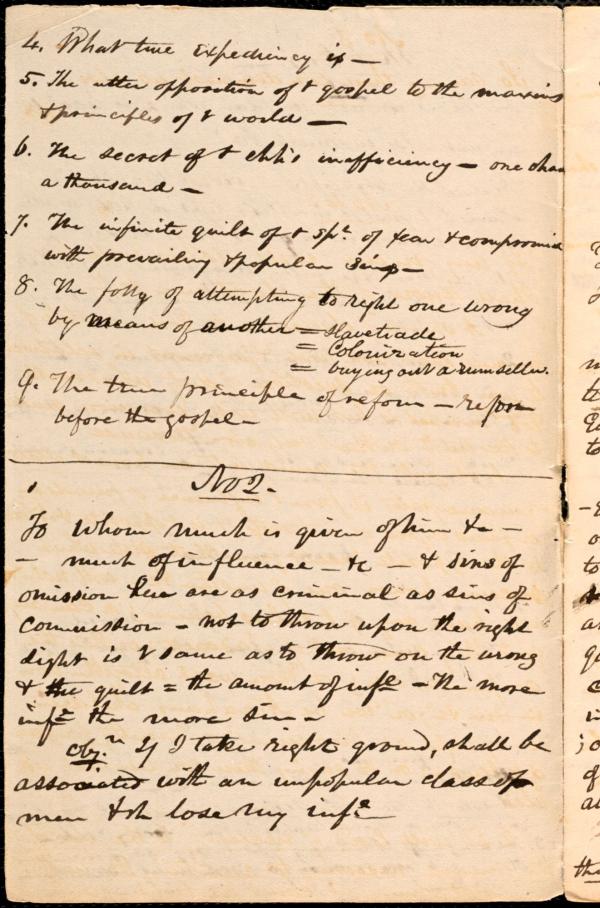 4. What true expediency is —
5. The utter opposition of & gospel to the maxims
& principles of & world —
6. The secret of & chh's inefficiency — one
a thousand —
7. The infinite guilt of & spt. of fear & compromise
with prevailing & popular sins —
8. The folly of attempting to right one wrong
by means of another = Slavetrade
= Colonization
= buying out a rumseller.
9. The true principle of reform — reform
before the gospel —
No 2.
To whom much is given of him &c —
— much of influence — &c — & sins of
omission here are as criminal as sins of
commission — not to throw upon the right
is & same as to throw on the wrong
& the guilt = the amount of infle — The more
infce the more sin —
objn If I take right ground, shall be
associated with an unpopular class of
men & sh lose my infce